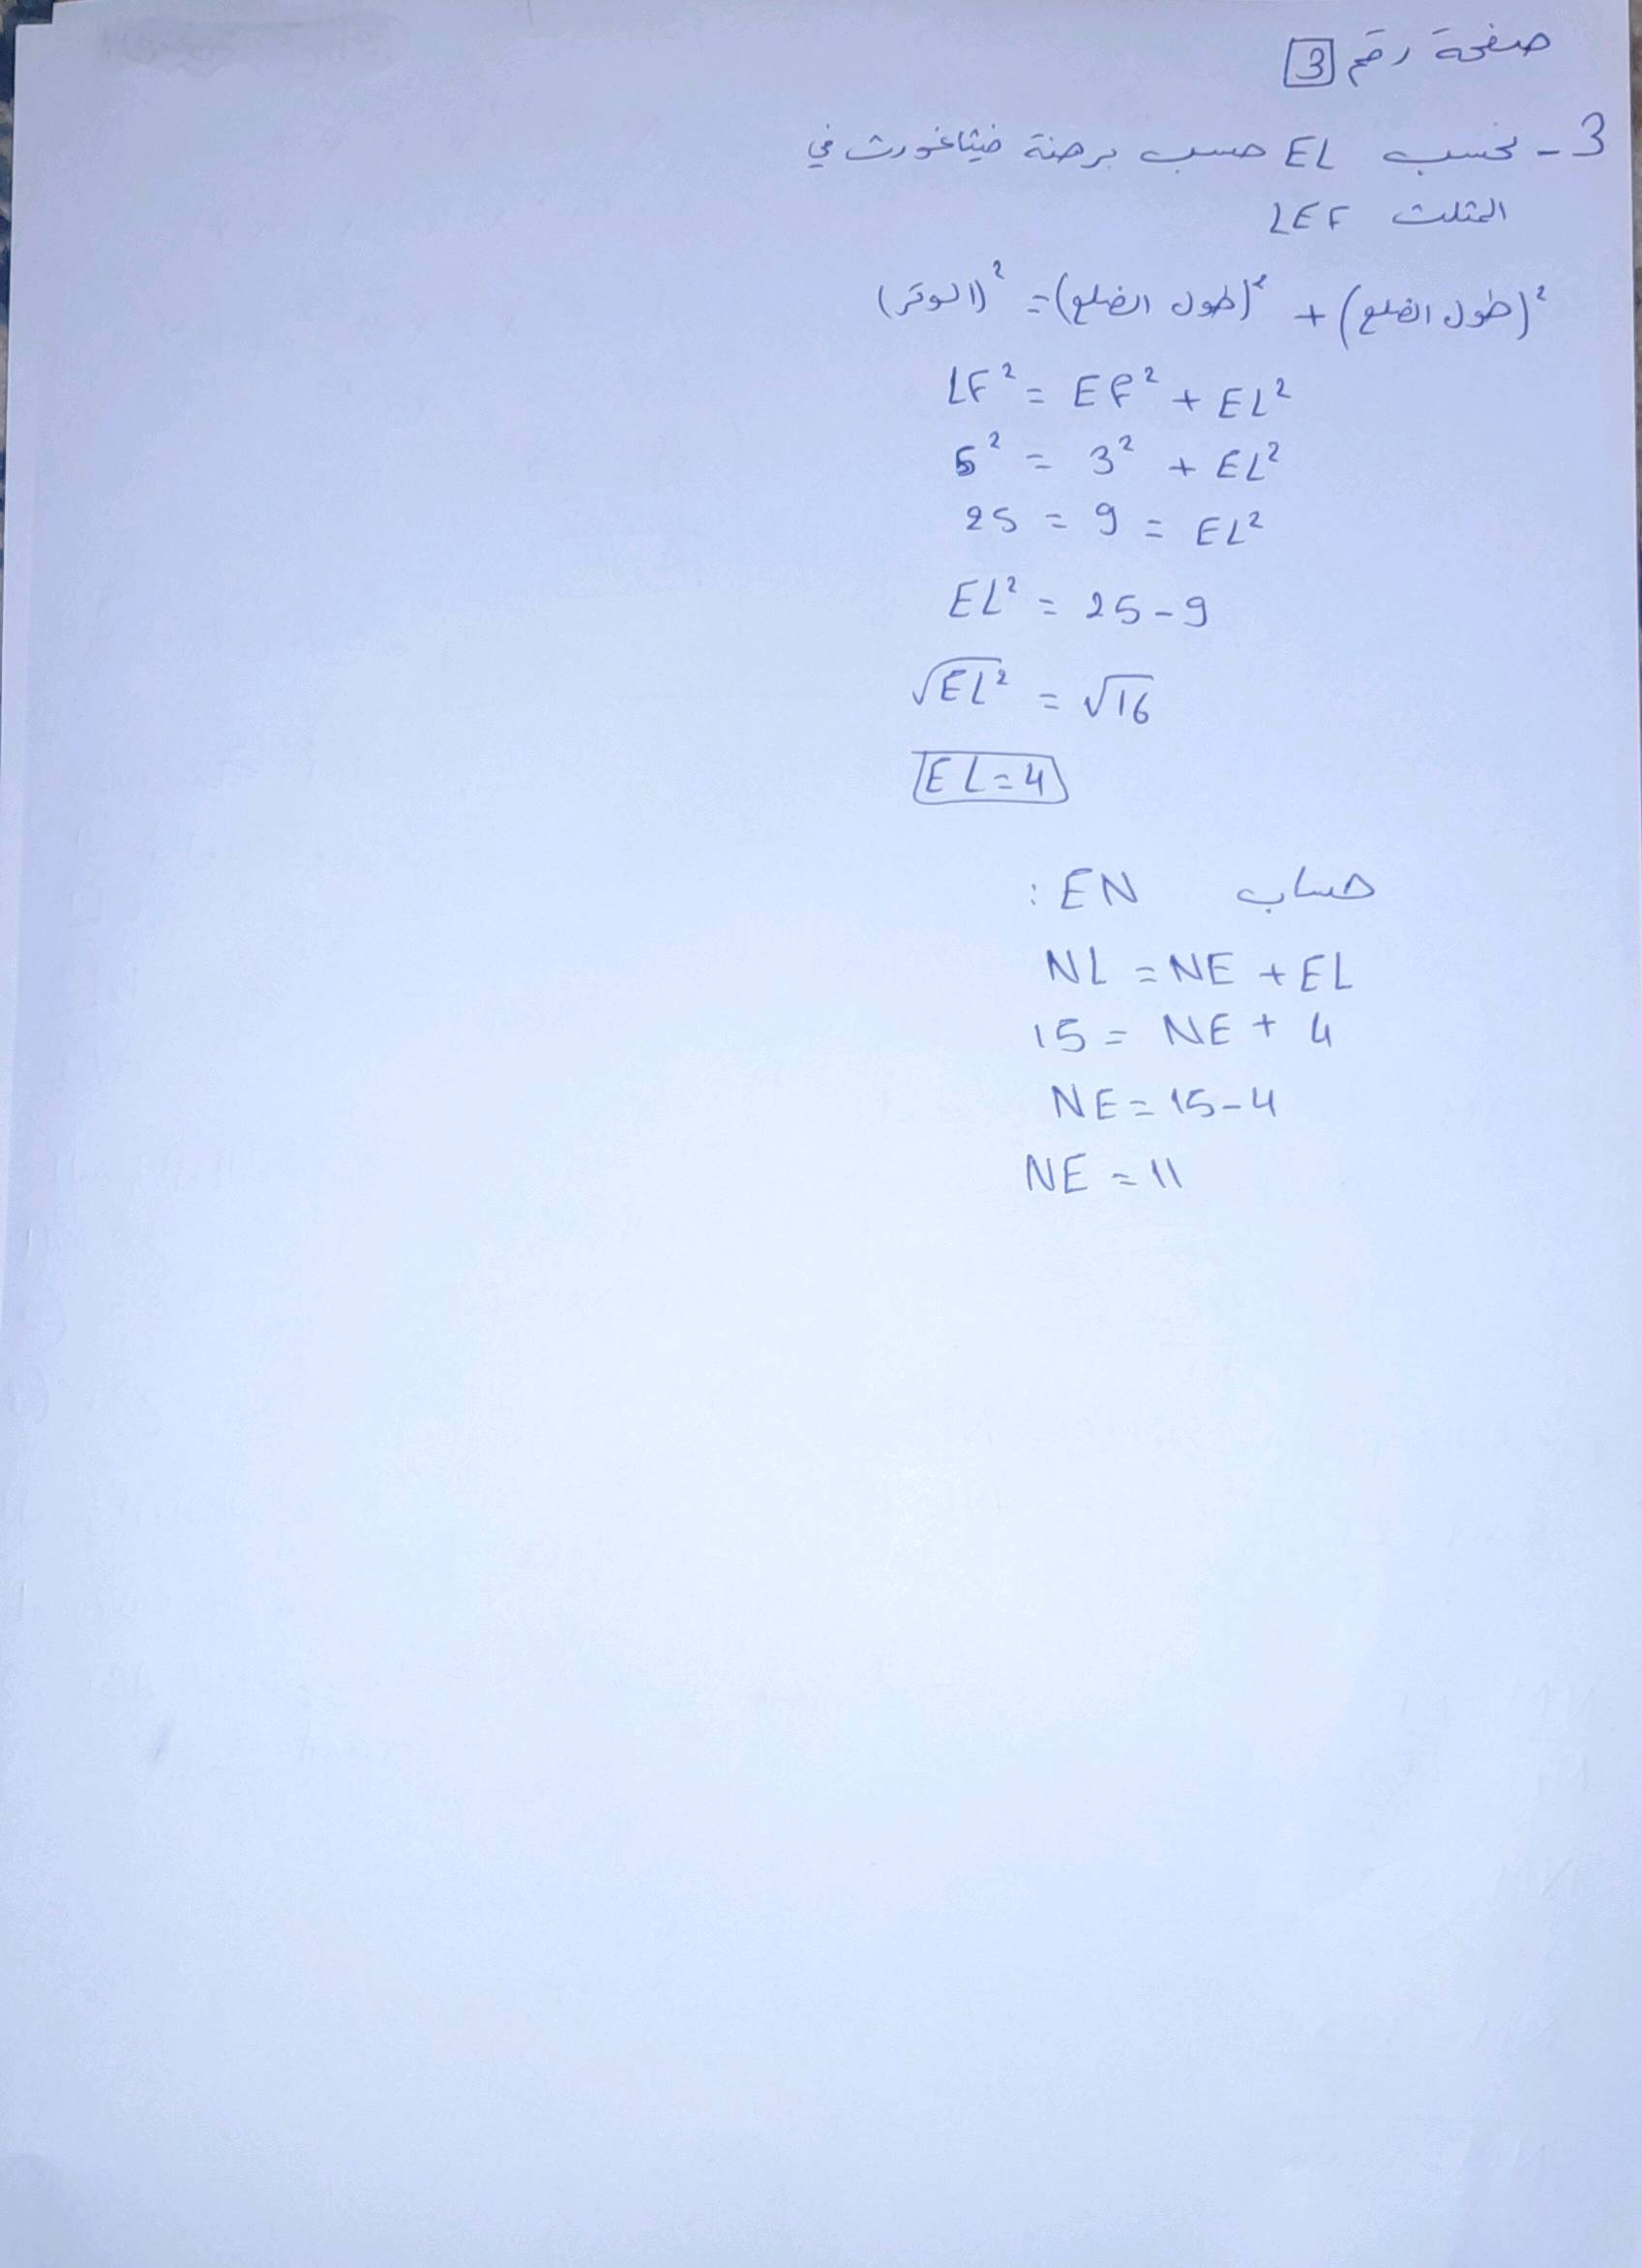 صفحة رقم 3
3 - نحسب EL حسب برهنة فيثاغورث في
المثلث LEF
(طول الضلع)² + (طول الضلع)² = (الوتر)²
LF² = EF² + EL²
5² = 3² + EL²
25 = 9 = EL²
EL² = 25 - 9
√EL² = √16
EL = 4
حساب EN :
NL = NE + EL
15 = NE + 4
NE = 15 - 4
NE = 11